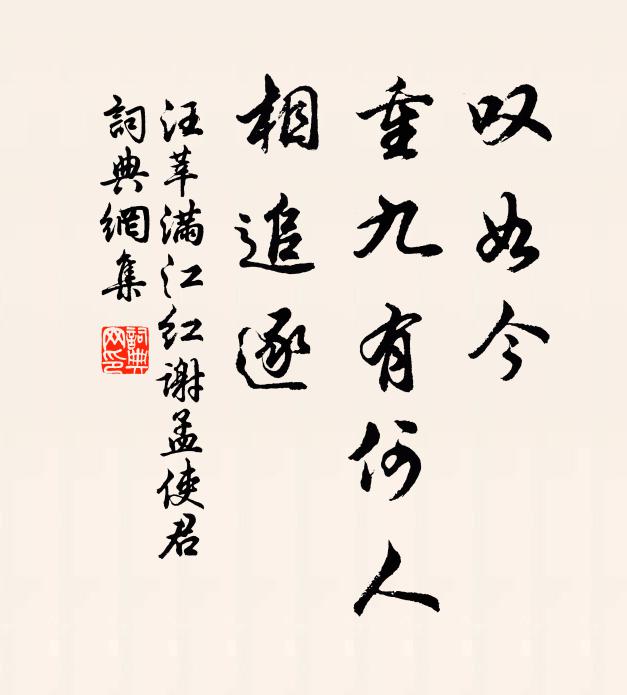 叹如今
重九有何人
相追逐
汪莘满江红谢孟使君
詞典網集
詞典
网印